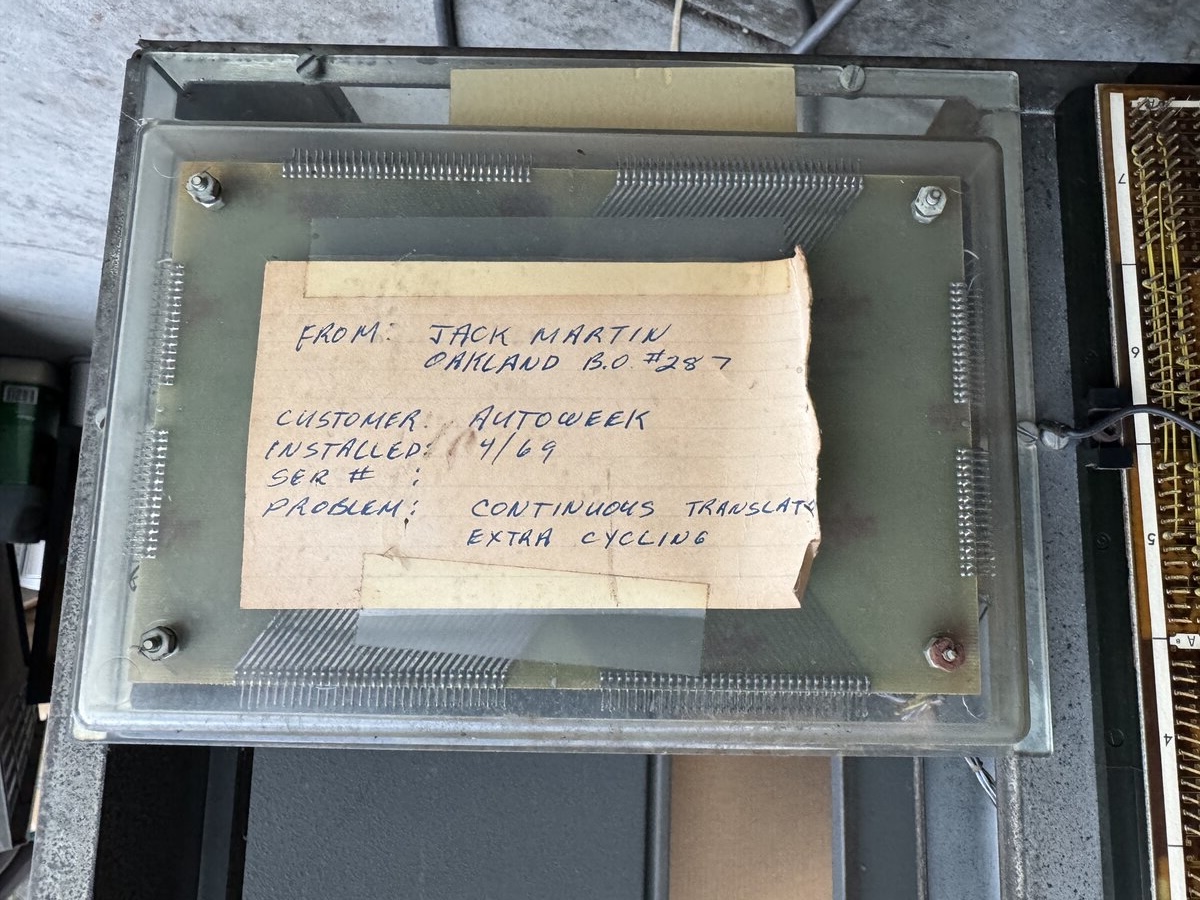 FROM: JACK MARTIN
OAKLAND B.O. #287
CUSTOMER: AUTOWEEK
INSTALLED: 4/69
SER # :
PROBLEM: CONTINUOUS TRANSLATE
EXTRA CYCLING
7
6
5
A
4